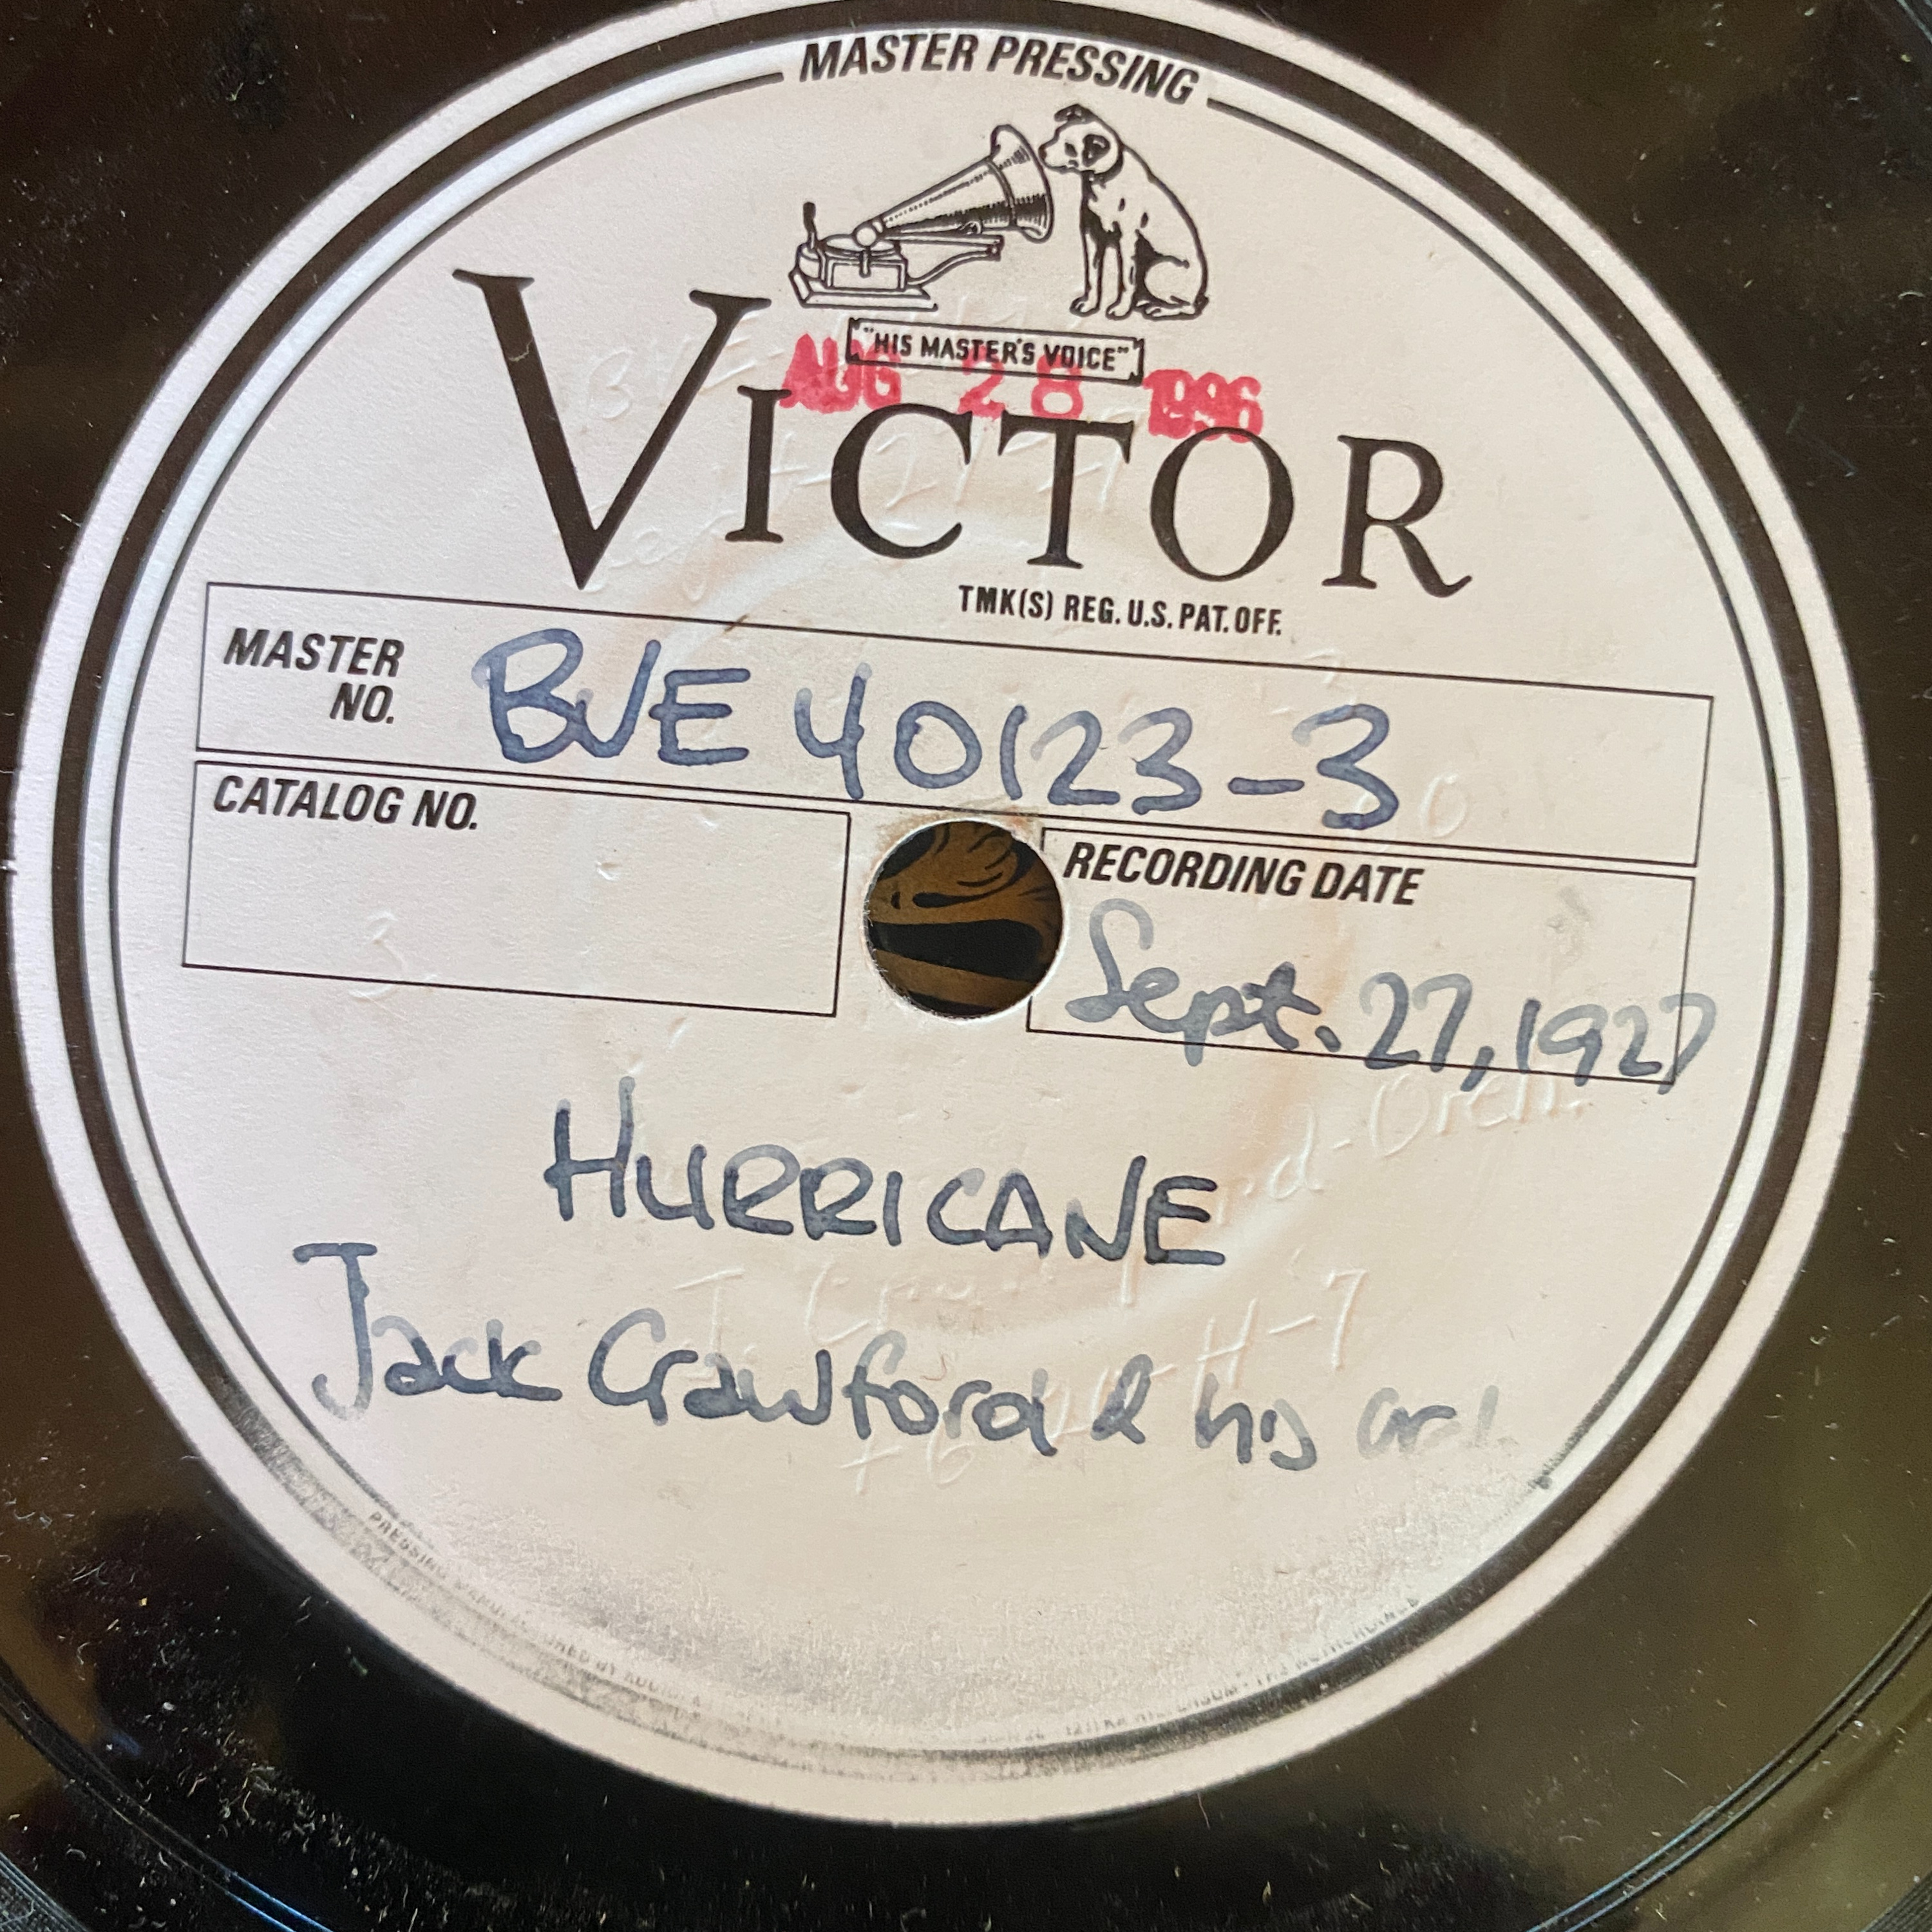 MASTER PRESSING
"HIS MASTER'S VOICE"
AUG 28 1996
VICTOR
TMK(S) REG. U.S. PAT. OFF.
MASTER NO.
BVE 40123-3
CATALOG NO.
RECORDING DATE
Sept. 27, 1927
HURRICANE
Jack Crawford & his